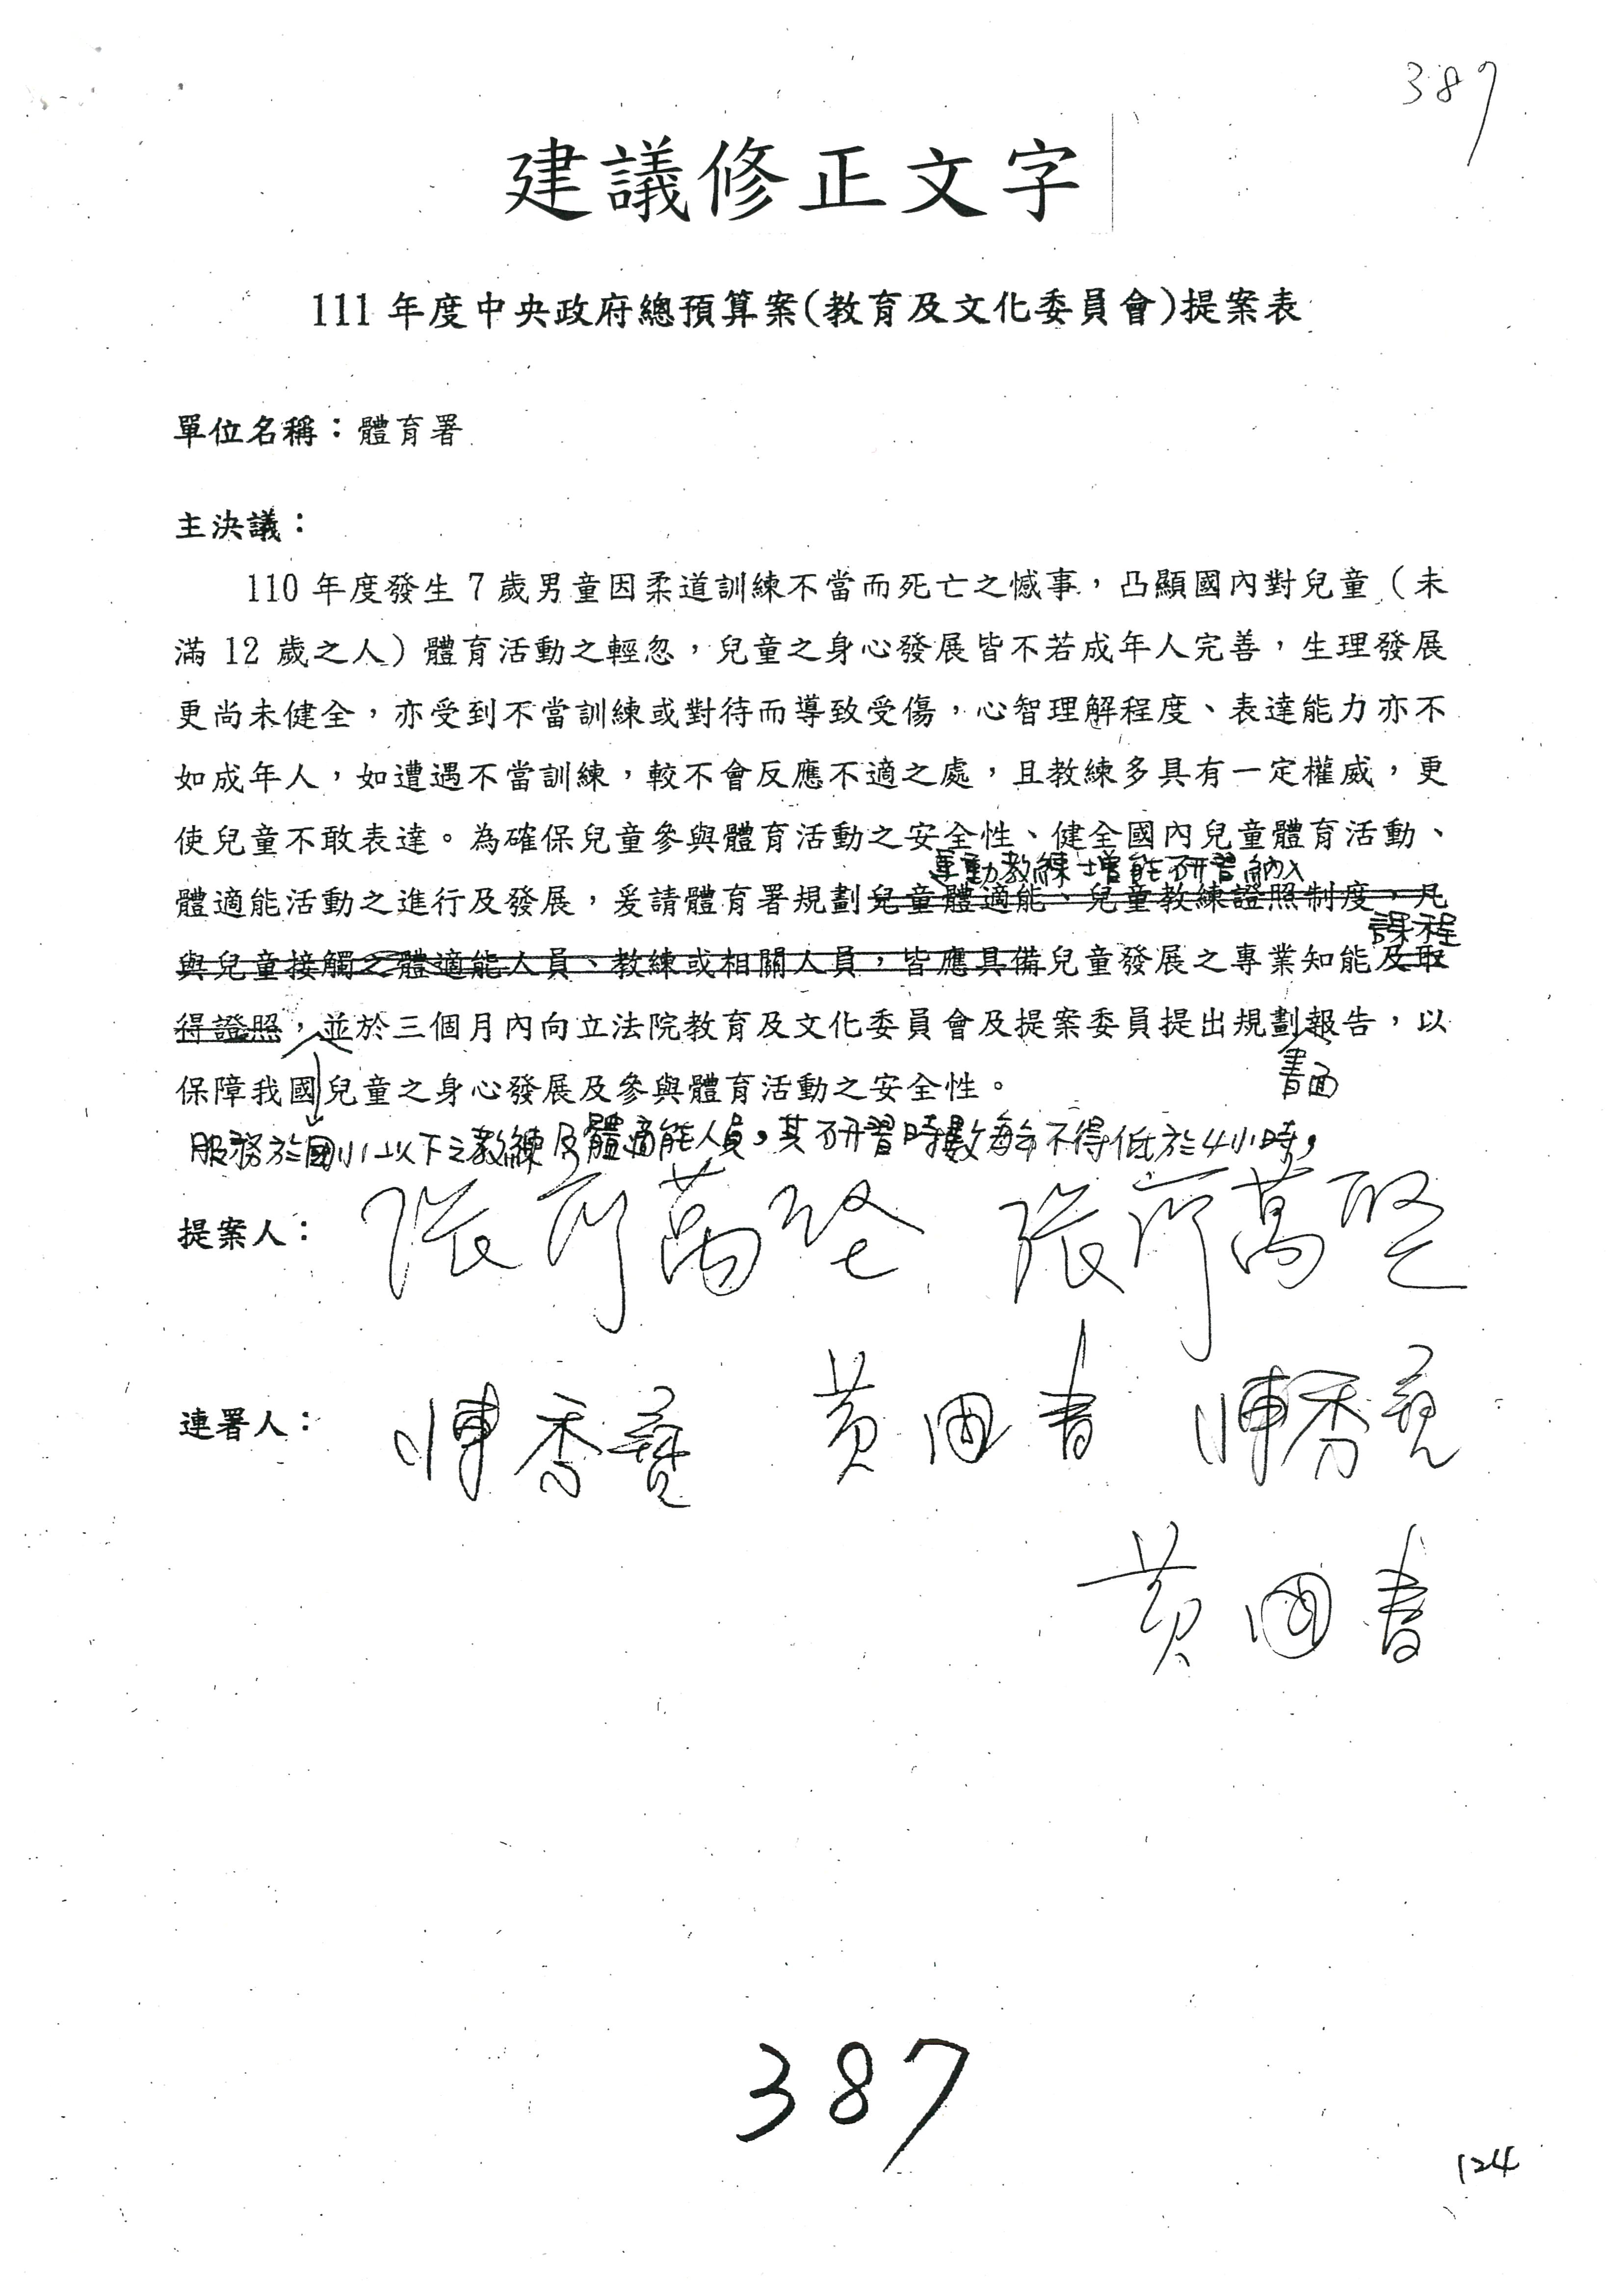 387
建議修正文字
111年度中央政府總預算案(教育及文化委員會)提案表
單位名稱：體育署
主決議：
110年度發生7歲男童因柔道訓練不當而死亡之憾事，凸顯國內對兒童（未
滿12歲之人）體育活動之輕忽，兒童之身心發展皆不若成年人完善，生理發展
更尚未健全，亦受到不當訓練或對待而導致受傷，心智理解程度、表達能力亦不
如成年人，如遭遇不當訓練，較不會反應不適之處，且教練多具有一定權威，更
使兒童不敢表達。為確保兒童參與體育活動之安全性、健全國內兒童體育活動、
運動教練增能研習納入
體適能活動之進行及發展，爰請體育署規劃兒童體適能、兒童教練證照制度，凡
課程
與兒童接觸之體適能人員、教練或相關人員，皆應具備兒童發展之專業知能及取
得證照，並於三個月內向立法院教育及文化委員會及提案委員提出規劃報告，以
書面
保障我國兒童之身心發展及參與體育活動之安全性。
服務於國小以下之教練及體適能人員，其研習時數每年不得低於4小時，
提案人：張廖萬堅 張廖萬堅
連署人：陳秀寳 黃國書 陳秀寳
黃國書
387
124